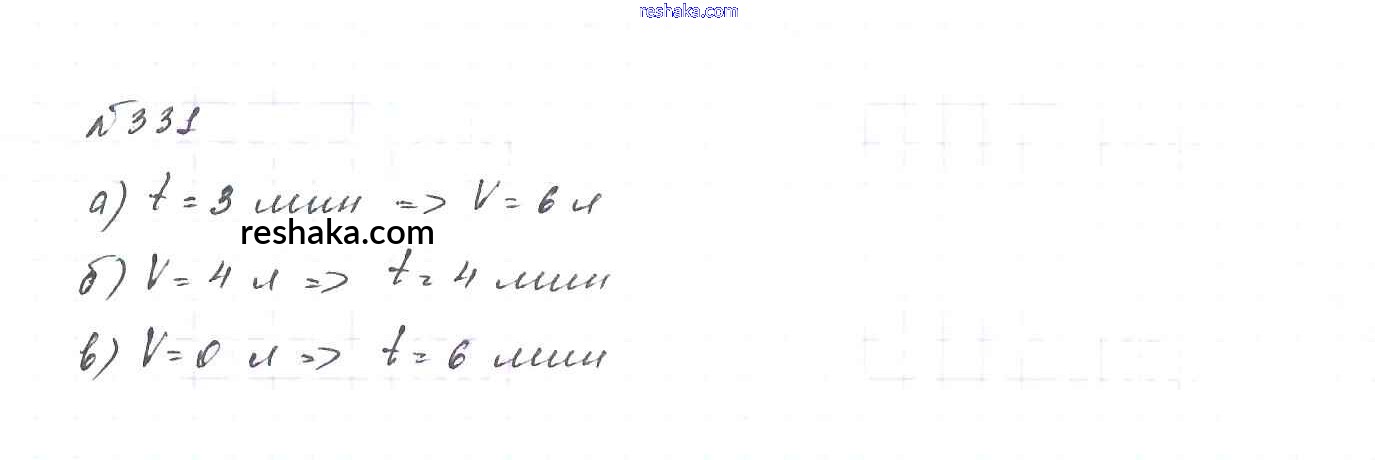 reshaka.com
№331
а) t = 3 мин => V = 6 л
reshaka.com
б) V = 4 л => t = 4 мин
в) V = 0 л => t = 6 мин